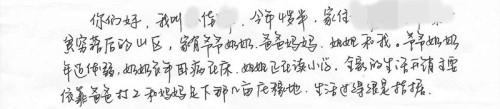 你们好，我叫 今年 岁半，家住
贫穷落后的山区，家有爷爷奶奶、爸爸妈妈、姐姐和我。爷爷奶奶
年迈体弱，奶奶常年因病在床，姐姐正在读小学，全家的生活开销主要
依靠爸爸打工和妈妈足下那几亩庄稼地，生活过得很是拮据。